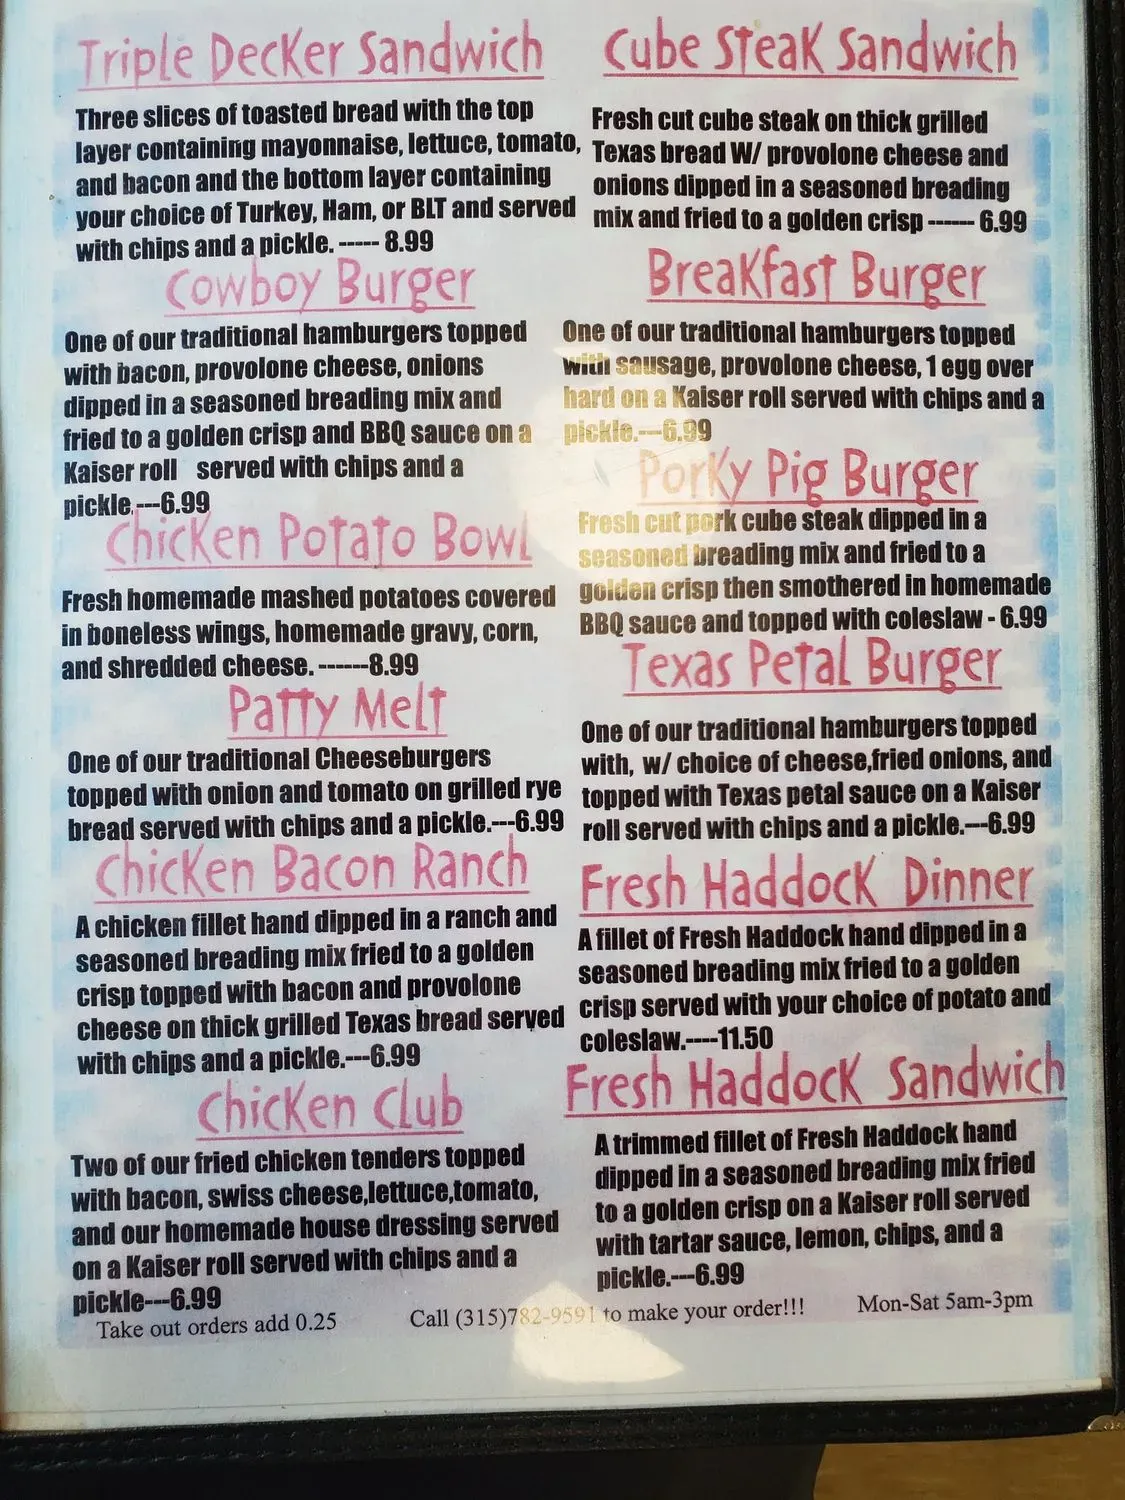 Triple Decker Sandwich
Three slices of toasted bread with the top
layer containing mayonnaise, lettuce, tomato,
and bacon and the bottom layer containing
your choice of Turkey, Ham, or BLT and served
with chips and a pickle. ----- 8.99
Cowboy Burger
One of our traditional hamburgers topped
with bacon, provolone cheese, onions
dipped in a seasoned breading mix and
fried to a golden crisp and BBQ sauce on a
Kaiser roll served with chips and a
pickle.---6.99
Chicken Potato Bowl
Fresh homemade mashed potatoes covered
in boneless wings, homemade gravy, corn,
and shredded cheese. ------8.99
Patty Melt
One of our traditional Cheeseburgers
topped with onion and tomato on grilled rye
bread served with chips and a pickle.---6.99
Chicken Bacon Ranch
A chicken fillet hand dipped in a ranch and
seasoned breading mix fried to a golden
crisp topped with bacon and provolone
cheese on thick grilled Texas bread served
with chips and a pickle.---6.99
Chicken Club
Two of our fried chicken tenders topped
with bacon, swiss cheese,lettuce,tomato,
and our homemade house dressing served
on a Kaiser roll served with chips and a
pickle---6.99
Cube Steak Sandwich
Fresh cut cube steak on thick grilled
Texas bread W/ provolone cheese and
onions dipped in a seasoned breading
mix and fried to a golden crisp ------ 6.99
Breakfast Burger
One of our traditional hamburgers topped
with sausage, provolone cheese, 1 egg over
hard on a Kaiser roll served with chips and a
pickle.---6.99
Porky Pig Burger
Fresh cut pork cube steak dipped in a
seasoned breading mix and fried to a
golden crisp then smothered in homemade
BBQ sauce and topped with coleslaw - 6.99
Texas Petal Burger
One of our traditional hamburgers topped
with, w/ choice of cheese,fried onions, and
topped with Texas petal sauce on a Kaiser
roll served with chips and a pickle.---6.99
Fresh Haddock Dinner
A fillet of Fresh Haddock hand dipped in a
seasoned breading mix fried to a golden
crisp served with your choice of potato and
coleslaw.----11.50
Fresh Haddock Sandwich
A trimmed fillet of Fresh Haddock hand
dipped in a seasoned breading mix fried
to a golden crisp on a Kaiser roll served
with tartar sauce, lemon, chips, and a
pickle.---6.99
Take out orders add 0.25 Call (315)782-9591 to make your order!!! Mon-Sat 5am-3pm